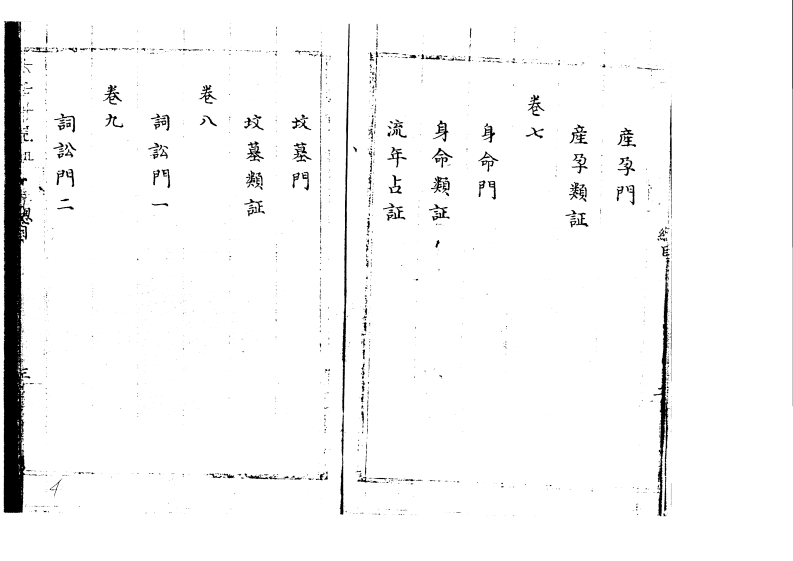 産孕門
産孕類証
卷七
身命門
身命類証
流年占証
坟墓門
坟墓類証
卷八
詞訟門一
卷九
詞訟門二
總目
4